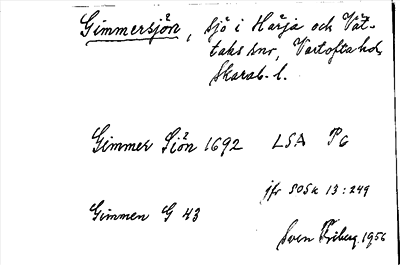 Gimmersjön, sjö i Härja och Vät-
taks snr, Vartofta hd,
Skarab. l.
Gimmer Siön 1692 LSA P6
jfr SOSk 13:249
Gimmen G 43
Sven Friberg 1956